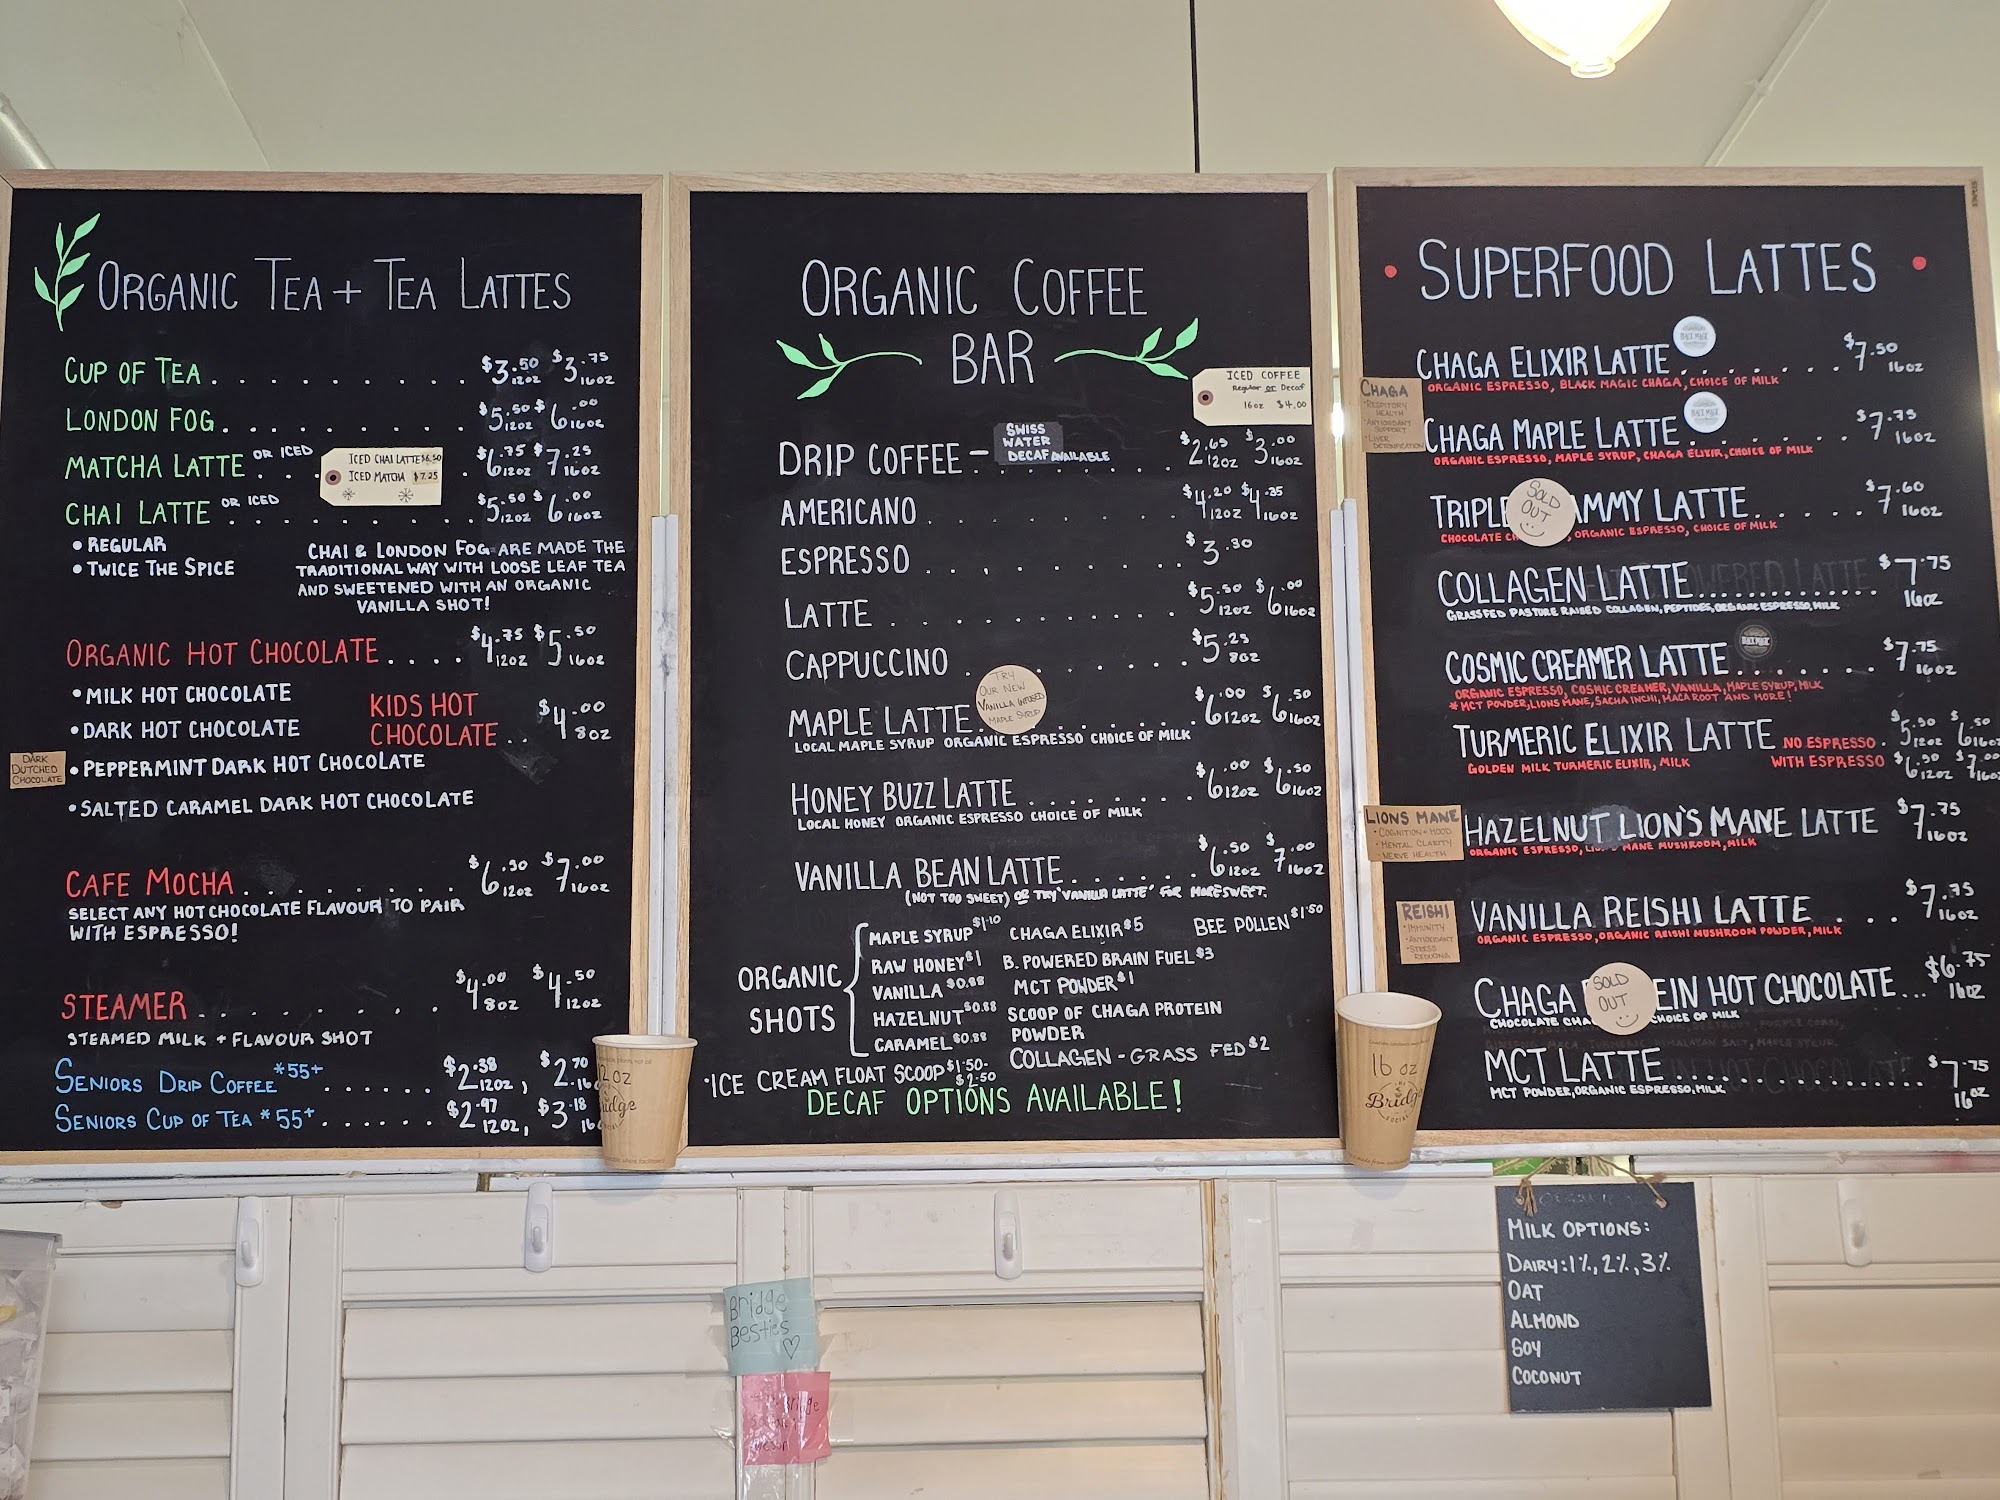 ORGANIC TEA + TEA LATTES
CUP OF TEA . . . . . . . . . . $3.50 12oz $3.75 16oz
LONDON FOG . . . . . . . . . $5.50 12oz $6.00 16oz
MATCHA LATTE OR ICED . . . $6.75 12oz $7.25 16oz
ICED CHAI LATTE $6.50
ICED MATCHA $7.25
CHAI LATTE OR ICED . . . . . . . . . $5.50 12oz $6.00 16oz
• REGULAR
• TWICE THE SPICE
CHAI & LONDON FOG ARE MADE THE
TRADITIONAL WAY WITH LOOSE LEAF TEA
AND SWEETENED WITH AN ORGANIC
VANILLA SHOT!
ORGANIC HOT CHOCOLATE . . . . $4.75 12oz $5.50 16oz
• MILK HOT CHOCOLATE
• DARK HOT CHOCOLATE
KIDS HOT
CHOCOLATE . . $4.00 8oz
DARK
DUTCHED
CHOCOLATE
• PEPPERMINT DARK HOT CHOCOLATE
• SALTED CARAMEL DARK HOT CHOCOLATE
CAFE MOCHA . . . . . . . . $6.50 12oz $7.00 16oz
SELECT ANY HOT CHOCOLATE FLAVOUR TO PAIR
WITH ESPRESSO!
STEAMER . . . . . . . . $4.00 8oz $4.50 12oz
STEAMED MILK + FLAVOUR SHOT
SENIORS DRIP COFFEE *55+ . . . . . . $2.38 12oz, $2.70 16
SENIORS CUP OF TEA *55+ . . . . . . $2.97 12oz, $3.18 16
ORGANIC COFFEE
BAR
ICED COFFEE
Regular or Decaf
16oz $4.00
DRIP COFFEE - SWISS WATER DECAF AVAILABLE $2.65 12oz $3.00 16oz
AMERICANO . . . . . . . . $4.20 12oz $4.25 16oz
ESPRESSO . . . . . . . . $3.30
LATTE . . . . . . . . . $5.50 12oz $6.00 16oz
CAPPUCCINO . . . . . . . . $5.25 8oz
TRY
OUR NEW
VANILLA INFUSED
MAPLE SYRUP
MAPLE LATTE . . . . . . . $6.00 12oz $6.50 16oz
LOCAL MAPLE SYRUP ORGANIC ESPRESSO CHOICE OF MILK
HONEY BUZZ LATTE . . . . . . . $6.00 12oz $6.50 16oz
LOCAL HONEY ORGANIC ESPRESSO CHOICE OF MILK
VANILLA BEAN LATTE . . . . . . $6.50 12oz $7.00 16oz
(NOT TOO SWEET) OR TRY "VANILLA LATTE" FOR MORE SWEET.
ORGANIC
SHOTS
MAPLE SYRUP $1.10
RAW HONEY $1
VANILLA $0.88
HAZELNUT $0.88
CARAMEL $0.88
CHAGA ELIXIR $5
B. POWERED BRAIN FUEL $3
MCT POWDER $1
SCOOP OF CHAGA PROTEIN
POWDER
COLLAGEN - GRASS FED $2
BEE POLLEN $1.50
• ICE CREAM FLOAT SCOOP $1.50-
$2.50
DECAF OPTIONS AVAILABLE!
• SUPERFOOD LATTES •
CHAGA ELIXIR LATTE . . . . . . . $7.50 16oz
ORGANIC ESPRESSO, BLACK MAGIC CHAGA, CHOICE OF MILK
CHAGA
• RESPITORY
HEALTH
• ANTIOXIDANT
SUPPORT
• LIVER
DETOXIFICATION
CHAGA MAPLE LATTE . . . . . . . $7.75 16oz
ORGANIC ESPRESSO, MAPLE SYRUP, CHAGA ELIXIR, CHOICE OF MILK
TRIPLE AMMY LATTE . . . . . $7.60 16oz
SOLD
OUT
CHOCOLATE CH , ORGANIC ESPRESSO, CHOICE OF MILK
COLLAGEN LATTE . . . . . . . . . . . . . . $7.75 16oz
GRASSFED PASTURE RAISED COLLAGEN, PEPTIDES, ORGANIC ESPRESSO, MILK
COSMIC CREAMER LATTE . . . . . . $7.75 16oz
ORGANIC ESPRESSO, COSMIC CREAMER, VANILLA, MAPLE SYRUP, MILK
* MCT POWDER, LIONS MANE, SACHA INCHI, MACA ROOT AND MORE!
TURMERIC ELIXIR LATTE NO ESPRESSO . $5.50 12oz $6.50 16oz
GOLDEN MILK TURMERIC ELIXIR, MILK WITH ESPRESSO $6.50 12oz $7.00 16oz
LIONS MANE
• COGNITION + MOOD
• MENTAL CLARITY
• NERVE HEALTH
HAZELNUT LION'S MANE LATTE $7.75 16oz
ORGANIC ESPRESSO, LION'S MANE MUSHROOM, MILK
REISHI
• IMMUNITY
• ANTIOXIDANT
• STRESS
REDUCING
VANILLA REISHI LATTE . . . $7.75 16oz
ORGANIC ESPRESSO, ORGANIC REISHI MUSHROOM POWDER, MILK
CHAGA EIN HOT CHOCOLATE . . . $6.75 16oz
SOLD
OUT
CHOCOLATE CHA CHOICE OF MILK
MCT LATTE . . . . . . . . . . . . . . . . $7.75 16oz
MCT POWDER, ORGANIC ESPRESSO, MILK
2 OZ
idge
16 OZ
Bridge
SOCIAL
MILK OPTIONS:
DAIRY: 1%, 2%, 3%
OAT
ALMOND
SOY
COCONUT
Bridge
Besties